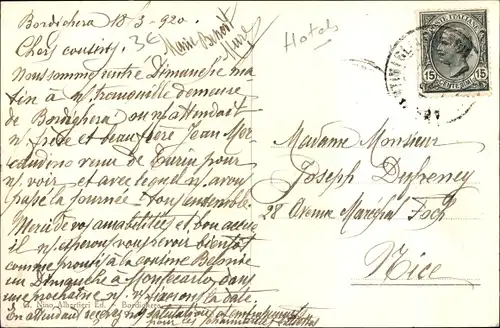 Bordighera 18-3-920.
Chers cousins
Marie Benoit
Hotels
Nous sommes rentré Dimanche ma
tin à n/ tranquille demeure
de Bordighera ou n/ attendait
n/ frère et beau frère Jean Mer
candino venu de Turin pour
n/ voir et avec lequel n/ avons
passé la journée tous ensemble.
Merci de vos amabilités et bon accue
il n/ esperons vous revoir bientôt
comme promis à la cousine
un Dimanche à Montecarlo, dans
une prochaine n/ fixerons la date
En attendant recevez nos salutations
pour les
15 15
Madame Monsieur
Joseph Dufreney
28 Avenue Maréchal Foch
Nice
G. Nino Alberieri Ed. - Bordighera